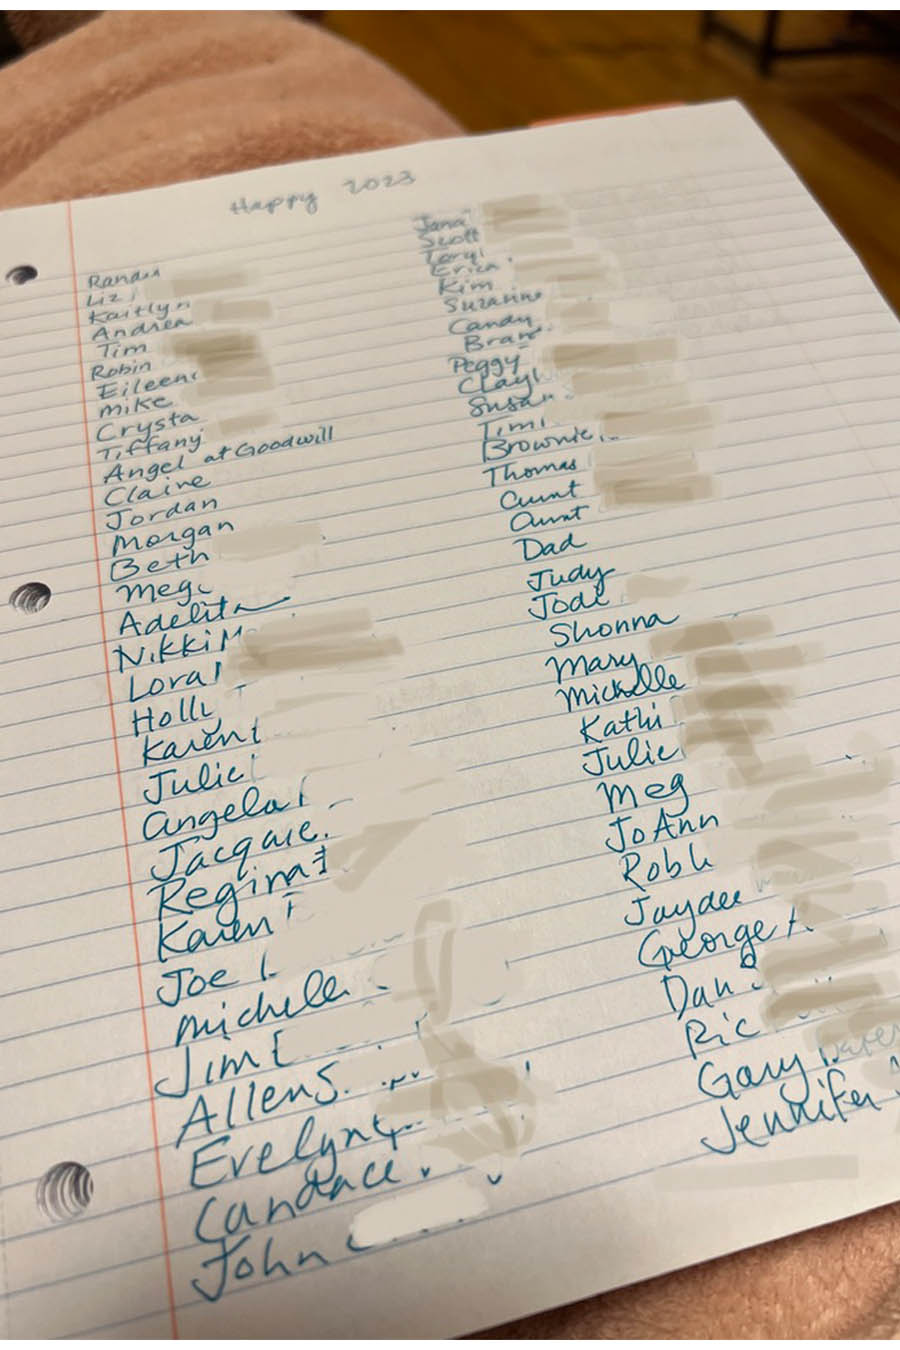 Happy 2023
Liz
Kaitlyn
Andrea
Tim
Robin
Eileen
Mike
Crysta
Tiffany
Angel at Goodwill
Claire
Jordan
Morgan
Beth
Meg
Adelita
Nikki M
Lora
Holly
Karen
Julie
Angela
Jacquie
Regina
Karen
Joe
Michelle
Jim
Allens
Evelyn
Candace
John
Jana
Scott
Erica
Kim
Suzanne
Candy
Peggy
Susan
Brownie
Thomas
Aunt
Aunt
Dad
Judy
Jodi
Shonna
Mary
Michelle
Kathi
Julie
Meg
JoAnn
Jaydee
George
Dan
Ric
Gary
Jennifer